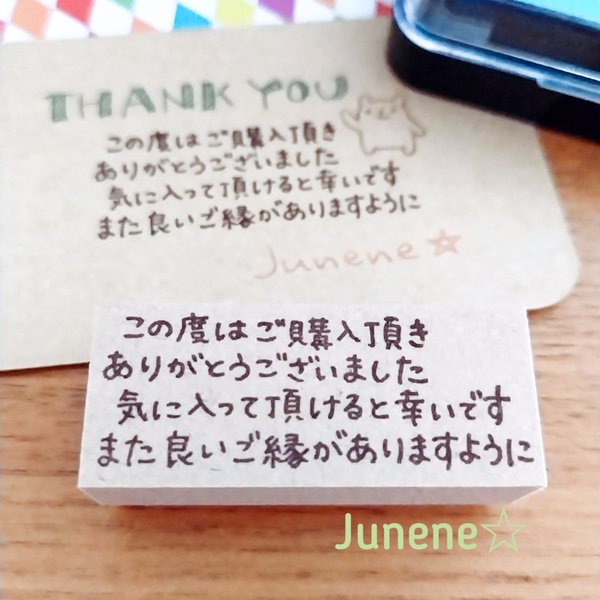 THANK YOU
この度はご購入頂き
ありがとうございました
気に入って頂けると幸いです
また良いご縁がありますように
Junene☆
この度はご購入頂き
ありがとうございました
気に入って頂けると幸いです
また良いご縁がありますように
Junene☆